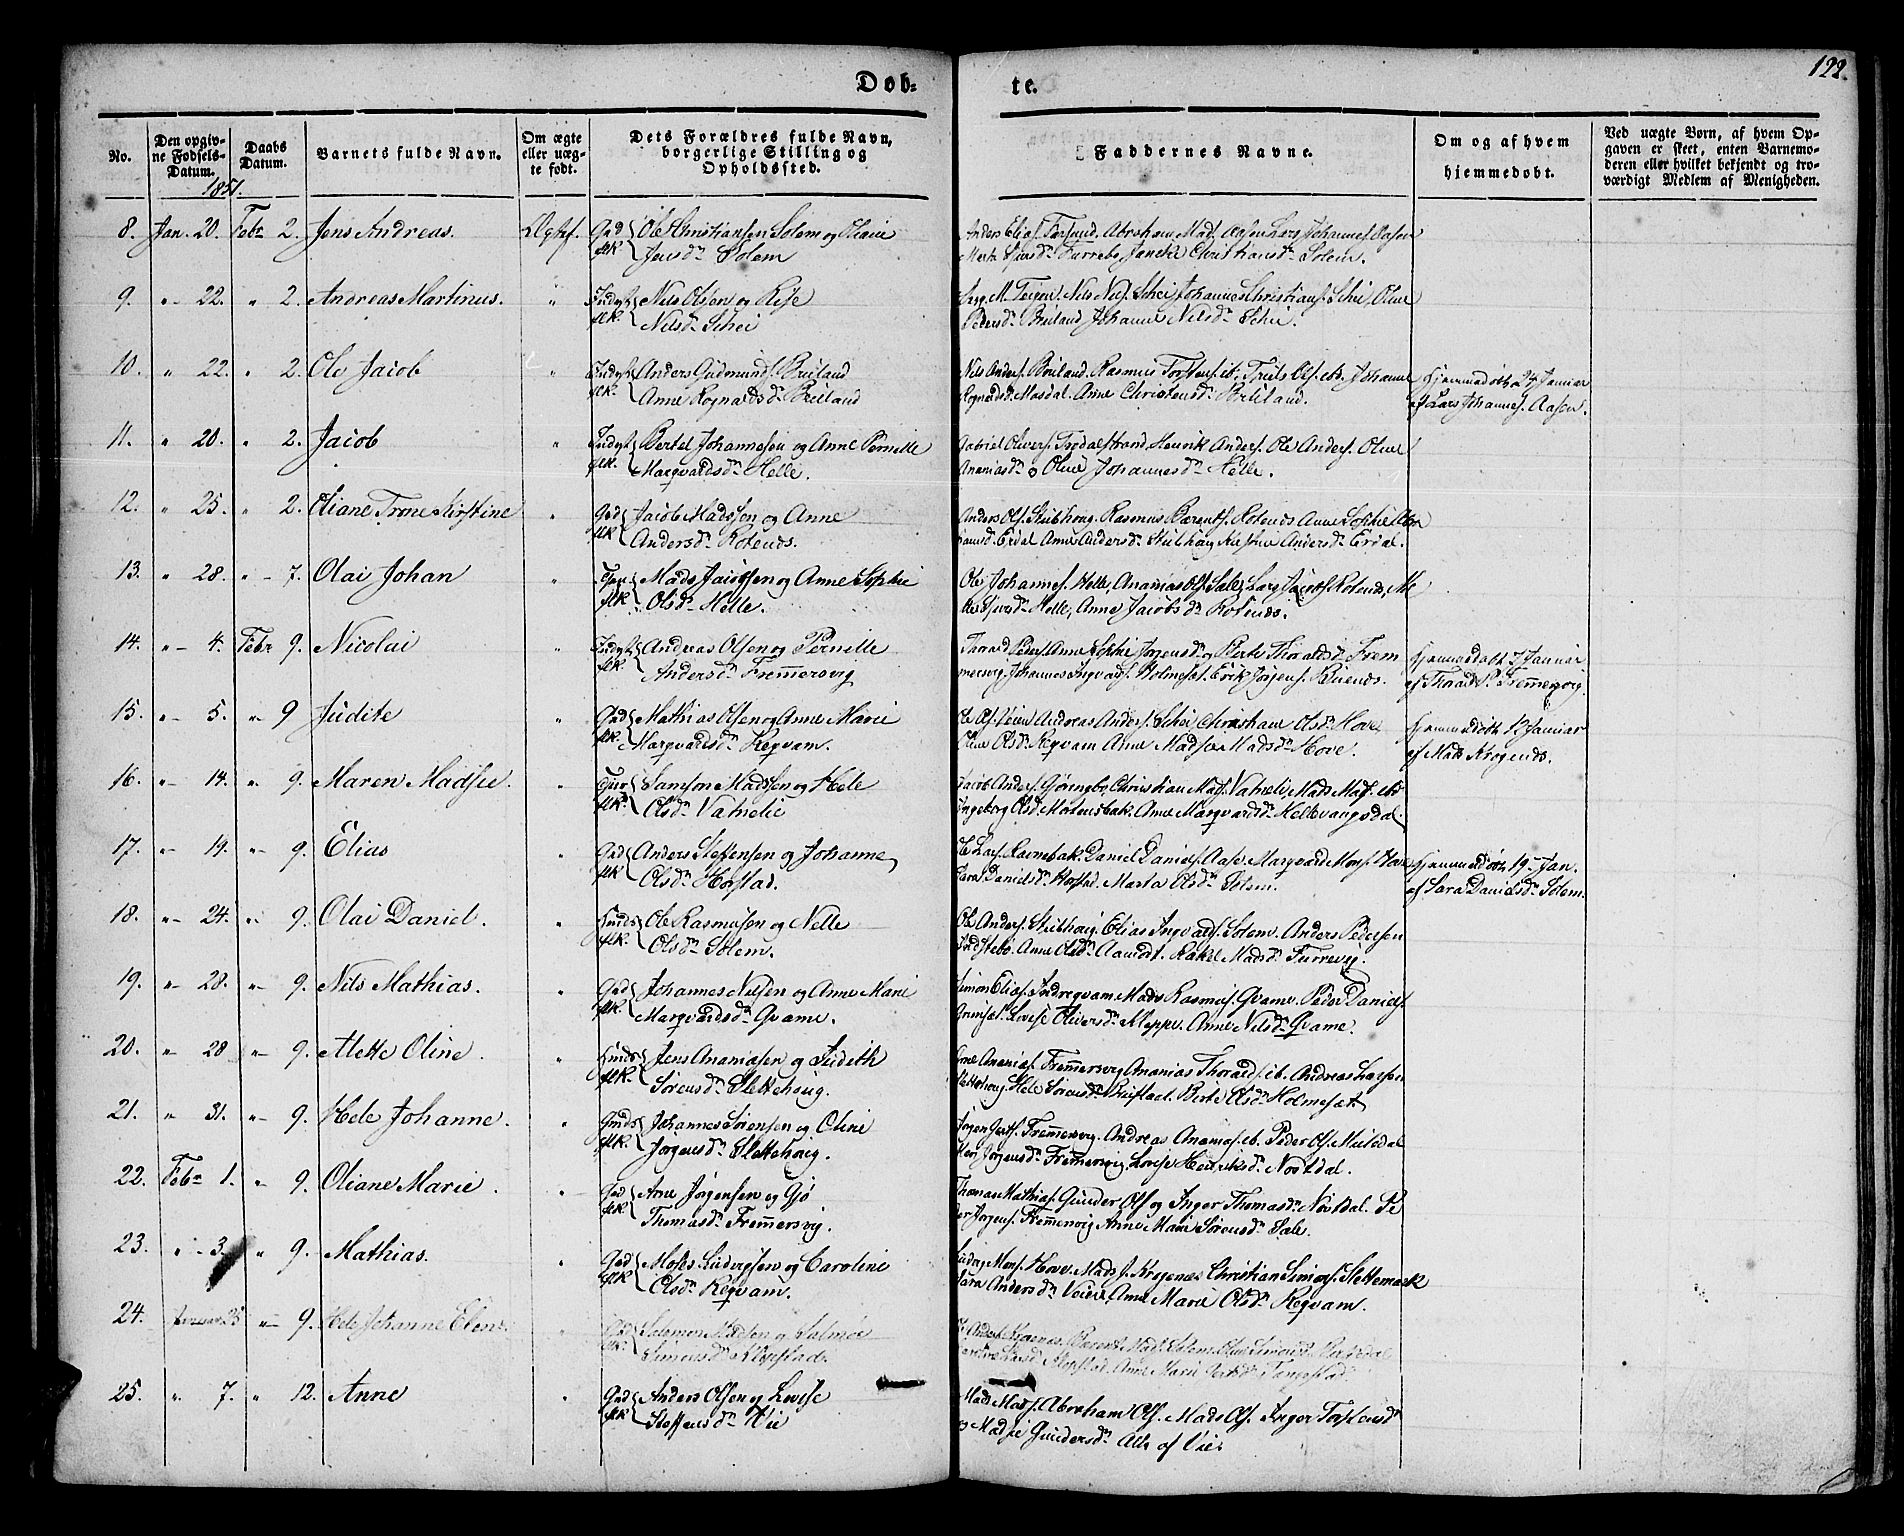 122.
Døb-
te.
No.
Den opgiv-
ne Fødsels-
Datum.
Daabs
Datum.
Barnets fulde Navn.
Om ægte
eller uæg-
te født.
Dets Forældres fulde Navn,
borgerlige Stilling og
Opholdssted.
Faddernes Navne.
Om og af hvem
hjemmedøbt.
Ved uægte Børn, af hvem Op-
gaven er skeet, enten Barnemo-
deren eller hvilket bekjendt og tro-
værdigt Medlem af Menigheden.
1851.
8. Jan. 20. Febr 2. Jens Andreas. Ægtef. Gad Ole Christiansen Solem og Oliane
flk. Jensdr Solem
Anders Elias. Abraham Mads. Aasen Lars Johannes. Aasen
Furrebø Janike Christiansdr Solem.
9. " 22. " 2. Andreas Martinus. " Indst Nils Olssen og Rise
flk. Nilsdr Schei
M. Teigen. Nils Nils. Schei Johannes Christians. Schei, Oline
Pedersdr Breiland Johanne Nilsdr Schei.
10. " 22. " 2. Ole Jacob " Indst Anders Gudmunds. Breiland
flk. Anne Rognaldsdr Breiland
Nils Anders. Breiland. Rasmus Torstens. ib. Ols. ib. Johanne
Rognaldsd. Masdal. Anne Christensdr Breiland.
Hjemmedøbt 24 Januar
af Lars Johannes. Aasen.
11. " 20. " 2. Jacob " Indst Bertel Johannesen og Anne Pernille
flk. Margvardsdr Helle.
Gabriel Olivers. Trodalstrand, Henrik Anders. Ole Anders. Oline
Ananiasdr o Oline Johannesdr Helle.
12. " 25. " 2. Oliane Trone Kirstine " Gad Jacob Madssen og Anne
flk Andersdr Rotends.
Anders Ols. Stubhoug. Rasmus Bærents. Rotends Anne Sophie
Erdal Anne Andersdr Stubhoug Andersdr Erdal.
13. " 28. " 7. Olai Johan " Mads Jacobsen og Anne Sophie
flk Olsdr Helle.
Ole Johannes. Helle, Ananias Ols. Sale, Lars Jacobs. Rotends,
Helle, Anne Jacobs dr Rotends.
14. " 4. Febr 9. Nicolai " Indst Andreas Olssen og Pernille
flk. Andersdr Fremmersvig
Peders. Anne Sophie Jørgensdr og Berte Thoraldsdr Frem
mersvig, Johannes Ingvalds. Holmeset. Erik Jørgens. Buends.
Hjemmedøbt 7 Januar
af Thorald P. Fremmersvig.
15. " 5. " 9 Judite " Gad Mathias Olssen og Anne Marie
flk. Margvardsdr Reqvam.
Ole Ols. Andreas Anders. Schei Christiane Olsdr Hove,
Oline Olsdr Reqvam Anne Madsdr Hove.
Hjemmedøbt 12 Januar
af Mads Krogends.
16. " 14. " 9. Maren Madsie " Samson Madssen og Hele
flk. Olsdr Vatnelie
Jacob Anders. Christian Mads. Vatneli, Mads Mads. ib.
Ingeborg Olsd. Mortensbak. Anne Margvardsdr Hellevangsdal.
17. " 19. " 9. Elias " Gad Anders Steffensen og Johanne
flk. Olsdr Horstad.
Lars. Ravnebak Daniel Daniels. Aase. Margvard Mons. Hove
Sara Danielsdr Horstad. Marta Olsdr Solem.
Hjemmedøbt 19 Jan.
af Sara Danielsdr Solem.
18. " 24. " 9. Olai Daniel. " Huuds Ole Rasmussen og Nelle
flk. Olsdr Solem.
Ole Anders. Stubhoug Elias Ingvalds. Solem. Anders Pedersen
Anne Olsdr Aamdal. Rakel Madsdr Furrevig.
19. " 28. " 9. Nils Mathias. " Gad Johannes Nilsen og Anne Marie
flk Margvardsdr Qvame.
Simon Elias. Indreqvam, Mads Rasmus. Qvame. Peder Daniels.
Grimset. Lovise Oliversdr Kleppe. Anne Nilsdr Qvame.
20. " 28 " 9. Alette Oline. " Huuds Jens Ananiassen og Judith
flk. Sørensdr Slettehoug.
Arne Ananias. Fremmersvig Ananias Thoralds. ib. Andreas Larsen
Slettehoug, Hele Sørensdr Berte Olsdr Holmeset.
21. " 31. " 9. Hele Johanne. " Huuds Johannes Sørensen og Oline
flk. Jørgensdr Slettehoug.
Jørgen Fremmersvig. Andreas Ananias. ib. Peder Ols.
Jørgensdr Fremmersvig Lovise Henriksdr Nordal.
22. Febr 1. " 9. Oliane Marie. " Gad Arne Jørgensen og Gjø
flk. Thomasdr Fremmersvig.
Thomas Mathias. Gunder Ols og Inger Thomasdr Nordal. Pe
der Jørgens. Fremmersvig Anne Marie Sørensdr Sale.
23. " 3. " 9. Mathias. " Gad Moses Ludvigsen og Caroline
flk Olsdr Reqvam.
Ludvig Mons. Hove. Mads J. Krogenes Christian Simons. Slettemark
Sara Andersdr Veien, Anne Marie Olsdr Reqvam.
24. Januar 25 " 9. Hele Johanne Elene. " Gad Salomon Madsen og Salmoe
flk. Simonsdr Klopstad.
Mads. Solem.
Klopstad. Anne Marie
25. " 7. " 12. Anne " Gad Anders Olssen og Lovise
flk Steffensdr Vie
Mads Mons. Abraham Ols. Mads Ols. Inger Torstensdr
og Madsie Gundersdr Alle af Vie.